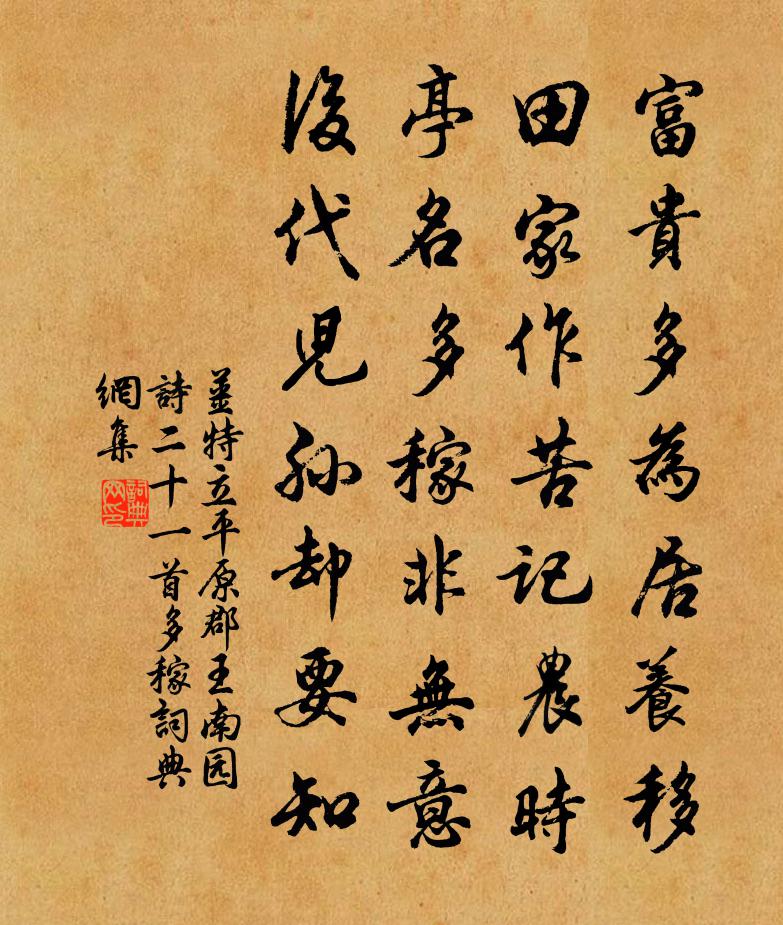 富貴多為居養移
田家作苦記農時
亭名多稼非無意
後代兒孫却要知
姜特立平原郡王南园
詩二十一首多稼詞典
網集
詞典網印